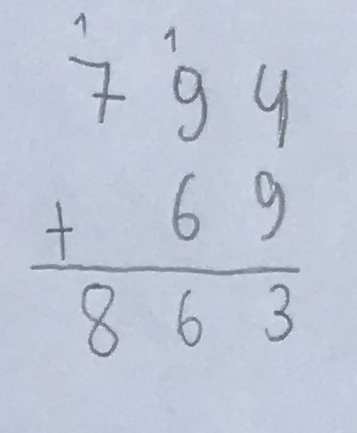 1 1
7 9 4
+ 6 9
8 6 3